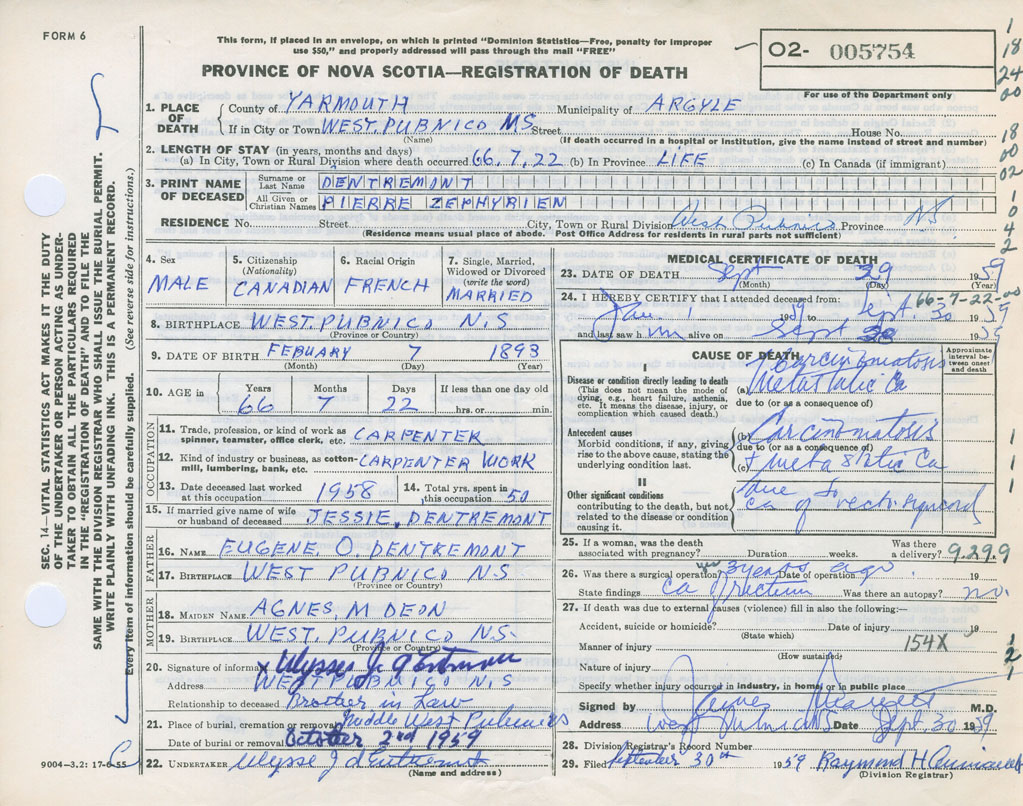 FORM 6
This form, if placed in an envelope, on which is printed "Dominion Statistics—Free, penalty for improper
use $50," and properly addressed will pass through the mail "FREE"
PROVINCE OF NOVA SCOTIA—REGISTRATION OF DEATH
O2- 005754
For use of the Department only
1
18
24
00
18
00
02
1
0
4
2
SEC. 14—VITAL STATISTICS ACT MAKES IT THE DUTY
OF THE UNDERTAKER OR PERSON ACTING AS UNDER-
TAKER TO OBTAIN ALL THE PARTICULARS REQUIRED
IN THE "REGISTRATION OF DEATH" AND TO FILE THE
SAME WITH THE DIVISION REGISTRAR WHO SHALL ISSUE THE BURIAL PERMIT.
WRITE PLAINLY WITH UNFADING INK. THIS IS A PERMANENT RECORD.
Every item of information should be carefully supplied. (See reverse side for instructions.)
1. PLACE OF DEATH County of YARMOUTH Municipality of ARGYLE
If in City or Town WEST. PUBNICO N.S Street House No.
(Name) (If death occurred in a hospital or institution, give the name instead of street and number)
2. LENGTH OF STAY (in years, months and days)
(a) In City, Town or Rural Division where death occurred 66. 7. 22 (b) In Province LIFE (c) In Canada (if immigrant)
3. PRINT NAME OF DECEASED Surname or Last Name DENTREMONT
All Given or Christian Names PIERRE ZEPHYRIEN
RESIDENCE No. Street City, Town or Rural Division West Pubnico Province N.S
(Residence means usual place of abode. Post Office Address for residents in rural parts not sufficient)
4. Sex MALE
5. Citizenship (Nationality) CANADIAN
6. Racial Origin FRENCH
7. Single, Married, Widowed or Divorced (write the word) MARRIED
8. BIRTHPLACE WEST. PUBNICO N.S
(Province or Country)
9. DATE OF BIRTH FEBUARY 7 1893
(Month) (Day) (Year)
10. AGE in Years Months Days If less than one day old
66 7 22 hrs. or min.
OCCUPATION
11. Trade, profession, or kind of work as
spinner, teamster, office clerk, etc. CARPENTER
12. Kind of industry or business, as cotton-
mill, lumbering, bank, etc. CARPENTER WORK
13. Date deceased last worked
at this occupation 1958
14. Total yrs. spent in
this occupation 50
15. If married give name of wife
or husband of deceased JESSIE, DENTREMONT
FATHER
16. NAME EUGENE, O. DENTREMONT
17. BIRTHPLACE WEST PUBNICO N.S
(Province or Country)
MOTHER
18. MAIDEN NAME AGNES, M DEON
19. BIRTHPLACE WEST. PUBNICO N.S.
(Province or Country)
20. Signature of informant X Ulysse J. d'Entremont
Address WEST PUBNICO N.S
Relationship to deceased Brother in Law
21. Place of burial, cremation or removal Middle West Pubnico
Date of burial or removal October 2nd 1959
22. UNDERTAKER Ulysse J d'Entremont
(Name and address)
9004—3.2: 17-6-55
MEDICAL CERTIFICATE OF DEATH
23. DATE OF DEATH Sept 29 1959
(Month) (Day) (Year)
66-7-22-00
24. I HEREBY CERTIFY that I attended deceased from:
Jan. 1 19 to Sept. 30 1959
and last saw him alive on Sept 1959
CAUSE OF DEATH
Approximate interval between onset and death
Disease or condition directly leading to death
(This does not mean the mode of
dying, e.g., heart failure, asthenia,
etc. It means the disease, injury, or
complication which caused death.)
Carcinomatosis
Metastatic Ca
due to (or as a consequence of)
Antecedent causes
Morbid conditions, if any, giving
rise to the above cause, stating the
underlying condition last.
(b) Carcinomatosis
due to (or as a consequence of)
(c) + metastatic Ca
II
Other significant conditions
contributing to the death, but not
related to the disease or condition
causing it.
due to
Ca of rectosigmoid
1
1
1
25. If a woman, was the death
associated with pregnancy? Duration weeks. Was there a delivery? 9.29.9
26. Was there a surgical operation? yes 3 years ago Date of operation 19
State findings Ca of rectum Was there an autopsy? no.
27. If death was due to external causes (violence) fill in also the following:—
Accident, suicide or homicide? Date of injury 19
(State which)
Manner of injury 154X
(How sustained)
Nature of injury
1
2
1
Specify whether injury occurred in industry, in home, or in public place
Signed by M.D.
Address West Pubnico Date Sept. 30 1959
28. Division Registrar's Record Number
29. Filed September 30th 1959 Raymond H
(Division Registrar)